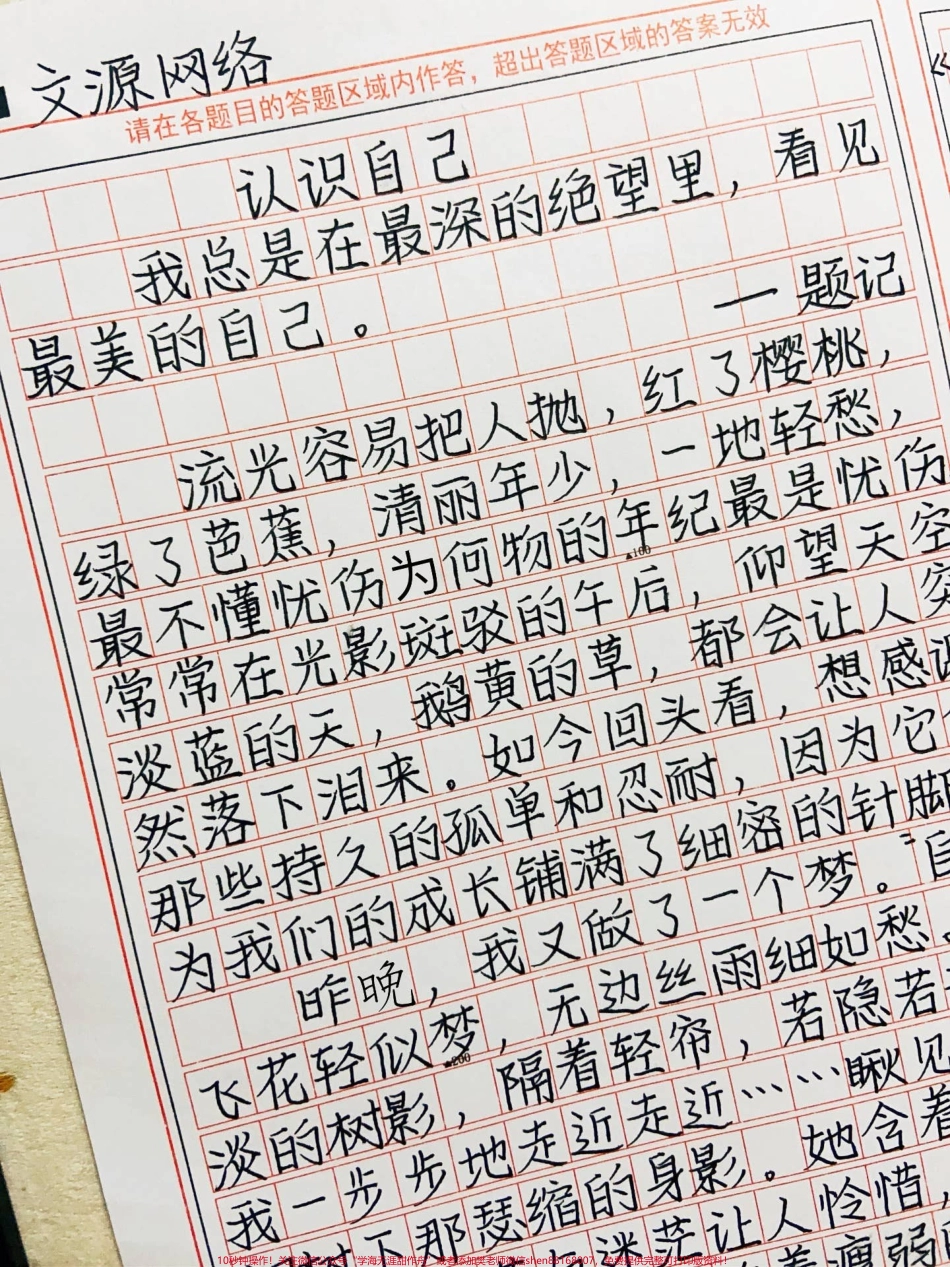 文源网络
请在各题目的答题区域内作答，超出答题区域的答案无效
认识自己
我总是在最深的绝望里，看见
最美的自己。
——题记
流光容易把人抛，红了樱桃，
绿了芭蕉，清丽年少，一地轻愁，
最不懂忧伤为何物的年纪最是忧伤
▲100
常常在光影斑驳的午后，仰望天空
淡蓝的天，鹅黄的草，都会让人突
然落下泪来。如今回头看，想感谢
那些持久的孤单和忍耐，因为它
为我们的成长铺满了细密的针脚
昨晚，我又做了一个梦。自
飞花轻似梦，无边丝雨细如愁。
▲200
淡的树影，隔着轻帘，若隐若
我一步步地走近走近……瞅见
下那瑟缩的身影。她含着
让人怜惜，
瘦弱
10秒钟操作！关注微信公众号“学海无涯甜作舟”或者添加樊老师微信shen88168007，免费提供完整可打印版资料！